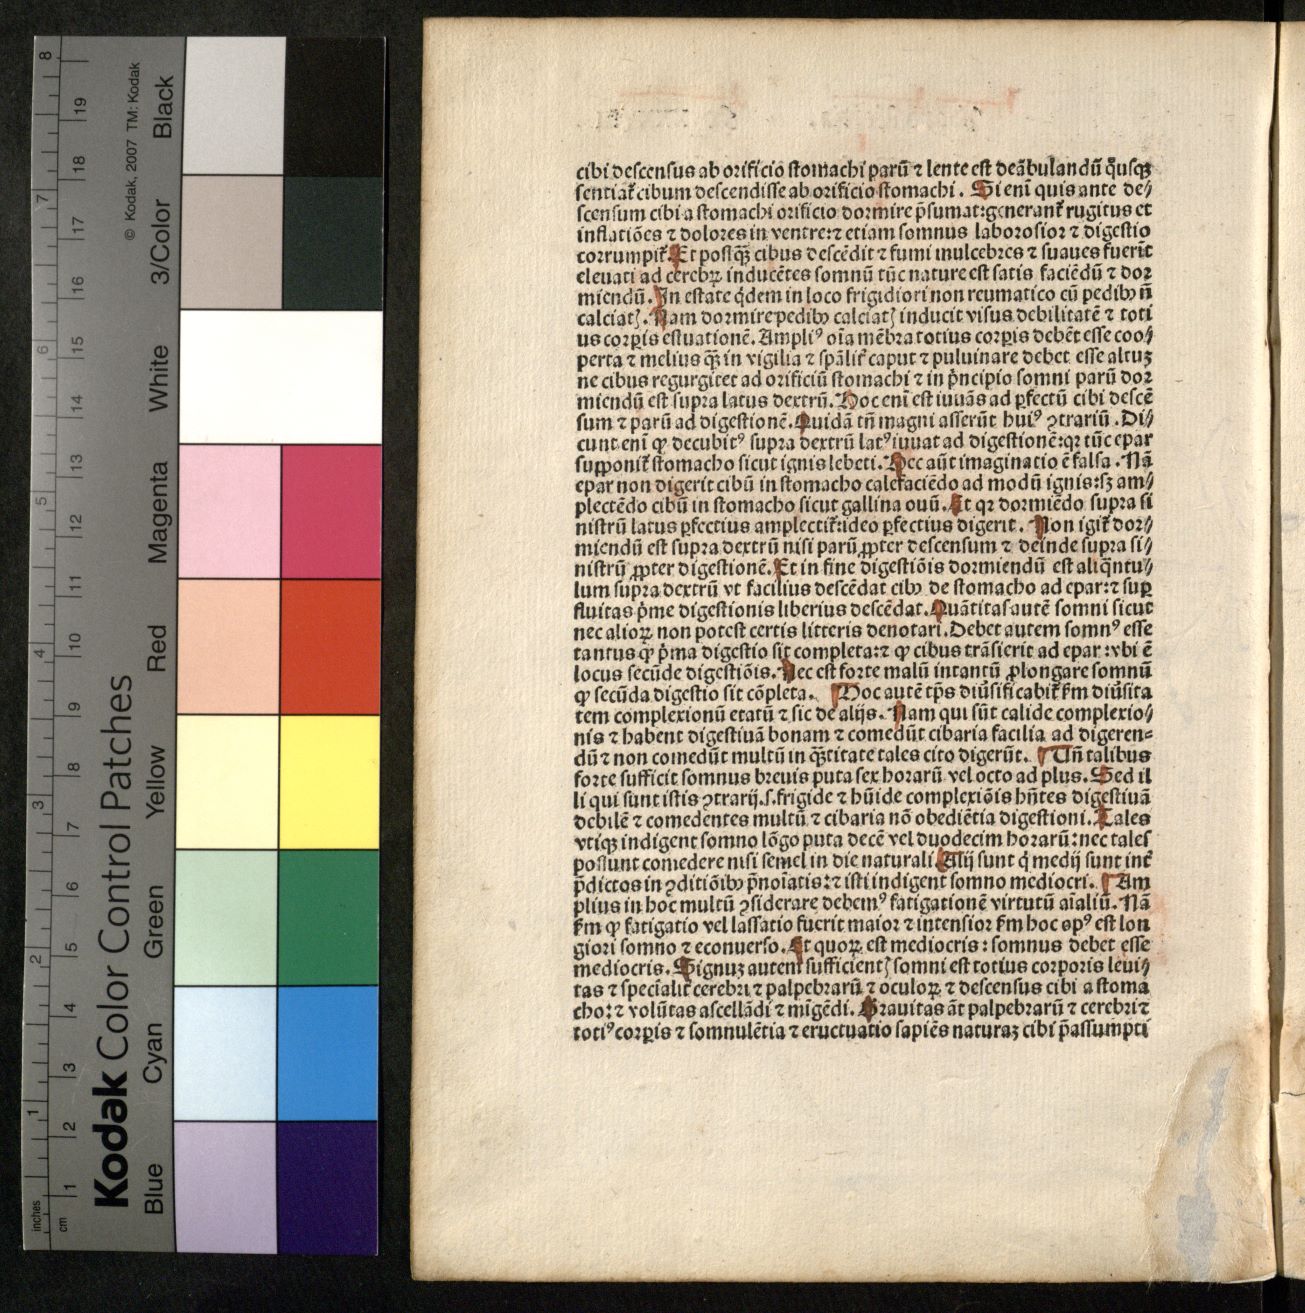 cibi descensus ab orificio stomachi parū ⁊ lente est deābulandū q̄usqꝫ
sentiat᷑ cibum descendisse ab orificio stomachi. Si eni quis ante de⸗
scensum cibi a stomachi orificio dormire p̄sumat:generant᷑ rugitus et
inflatiōes ⁊ dolores in ventre:⁊ etiam somnus laborosior ⁊ digestio
corrumpit᷑. Et postq̄ꝫ cibus descēdit ⁊ fumi mulcebres ⁊ suaues fuerīt
eleuati ad cerebꝝ inducētes somnū tūc nature est satis faciēdū ⁊ dor
miendū. In estate q̇dem in loco frigidiori non reumatico cū pedibꝰ n̄
calciatꝭ. Nam dormire pedibꝰ calciatꝭ inducit visus debilitatē ⁊ toti
us corꝑis estuationē. Ampliꝰ oīa mēbra totius corꝑis debēt esse coo⸗
perta ⁊ melius q̄ꝫ in vigilia ⁊ spālit᷑ caput ⁊ puluinare debet esse altuꝫ
ne cibus regurgitet ad orificiū stomachi ⁊ in pͥncipio somni parū dor
miendū est supra latus dextrū. Hoc eni est iuuās ad ꝑfectū cibi descē
sum ⁊ parū ad digestionē. Quidā tn̄ magni asserūt huiꝰ ꝯtrariū. Di⸗
cunt eni ꝙ decubitꝰ supra dextrū latꝰ iuuat ad digestionē:qꝛ tūc epar
supponit᷑ stomacho sicut ignis lebeti. Hec aūt imaginatio ē falsa. Nā
epar non digerit cibū in stomacho calefaciēdo ad modū ignis:sꝫ am⸗
plectēdo cibū in stomacho sicut gallina ouū. Et qꝛ dormiēdo supra si
nistrū latus ꝑfectius amplectit᷑:ideo ꝑfectius digerit. Non igit᷑ dor⸗
miendū est supra dextrū nisi parū ꝓpter descensum ⁊ deinde supra si⸗
nistrū ꝓpter digestionē. Et in fine digestiōis dormiendū est aliq̄ntu⸗
lum supra dextrū vt facilius descēdat cibꝰ de stomacho ad epar:⁊ suꝑ
fluitas pͥme digestionis liberius descēdat. Quātitas autē somni sicut
nec alioꝝ non potest certis litteris denotari. Debet autem somnꝰ esse
tantus ꝙ pͥma digestio sit completa:⁊ ꝙ cibus trāsierit ad epar:vbi ē
locus secūde digestiōis. Nec est forte malū intantū ꝓlongare somnū
ꝙ secūda digestio sit cōpleta. ¶ Hoc autē tp̄s diūsificabit᷑ ẜm diūsita
tem complexionū etatū ⁊ sic de alijs. Nam qui sūt calide complexio⸗
nis ⁊ habent digestiuā bonam ⁊ comedūt cibaria facilia ad digeren⸗
dū ⁊ non comedūt multū in q̄ꝫtitate tales cito digerūt. ¶ Un̄ talibus
forte sufficit somnus breuis puta sex horarū vel octo ad plus. Sed il
li qui sunt istis ꝯtrarij.s.frigide ⁊ hūide complexiōis hn̄tes digestiuā
debilē ⁊ comedentes multū ⁊ cibaria nō obediētia digestioni. Tales
vtiqꝫ indigent somno lōgo puta decē vel duodecim horarū:nec tales
possunt comedere nisi semel in die naturali. Alij sunt q̇ medij sunt int᷑
p̄dictos in ꝯditiōibꝰ p̄noīatis:⁊ isti indigent somno mediocri. ¶ Am
plius in hoc multū ꝯsiderare debemꝰ fatigationē virtutū aīaliū. Nā
ẜm ꝙ fatigatio vel lassatio fuerit maior ⁊ intensior ẜm hoc opꝰ est lon
giori somno ⁊ econuerso. Et quoꝝ est mediocris: somnus debet esse
mediocris. Signuꝫ autem sufficientꝭ somni est totius corporis leui⸗
tas ⁊ specialit᷑ cerebri ⁊ palpebrarū ⁊ oculoꝝ ⁊ descensus cibi a stoma
cho:⁊ volūtas ascellādi ⁊ mīgēdi. Grauitas āt palpebrarū ⁊ cerebri ⁊
totiꝰ corꝑis ⁊ somnulētia ⁊ eructuatio sapiēs naturaꝫ cibi p̄assumpti
Kodak Color Control Patches
© Kodak, 2007 TM: Kodak
Blue Cyan Green Yellow Red Magenta White 3/Color Black
inches 1 2 3 4 5 6 7 8
cm 1 2 3 4 5 6 7 8 9 10 11 12 13 14 15 16 17 18 19